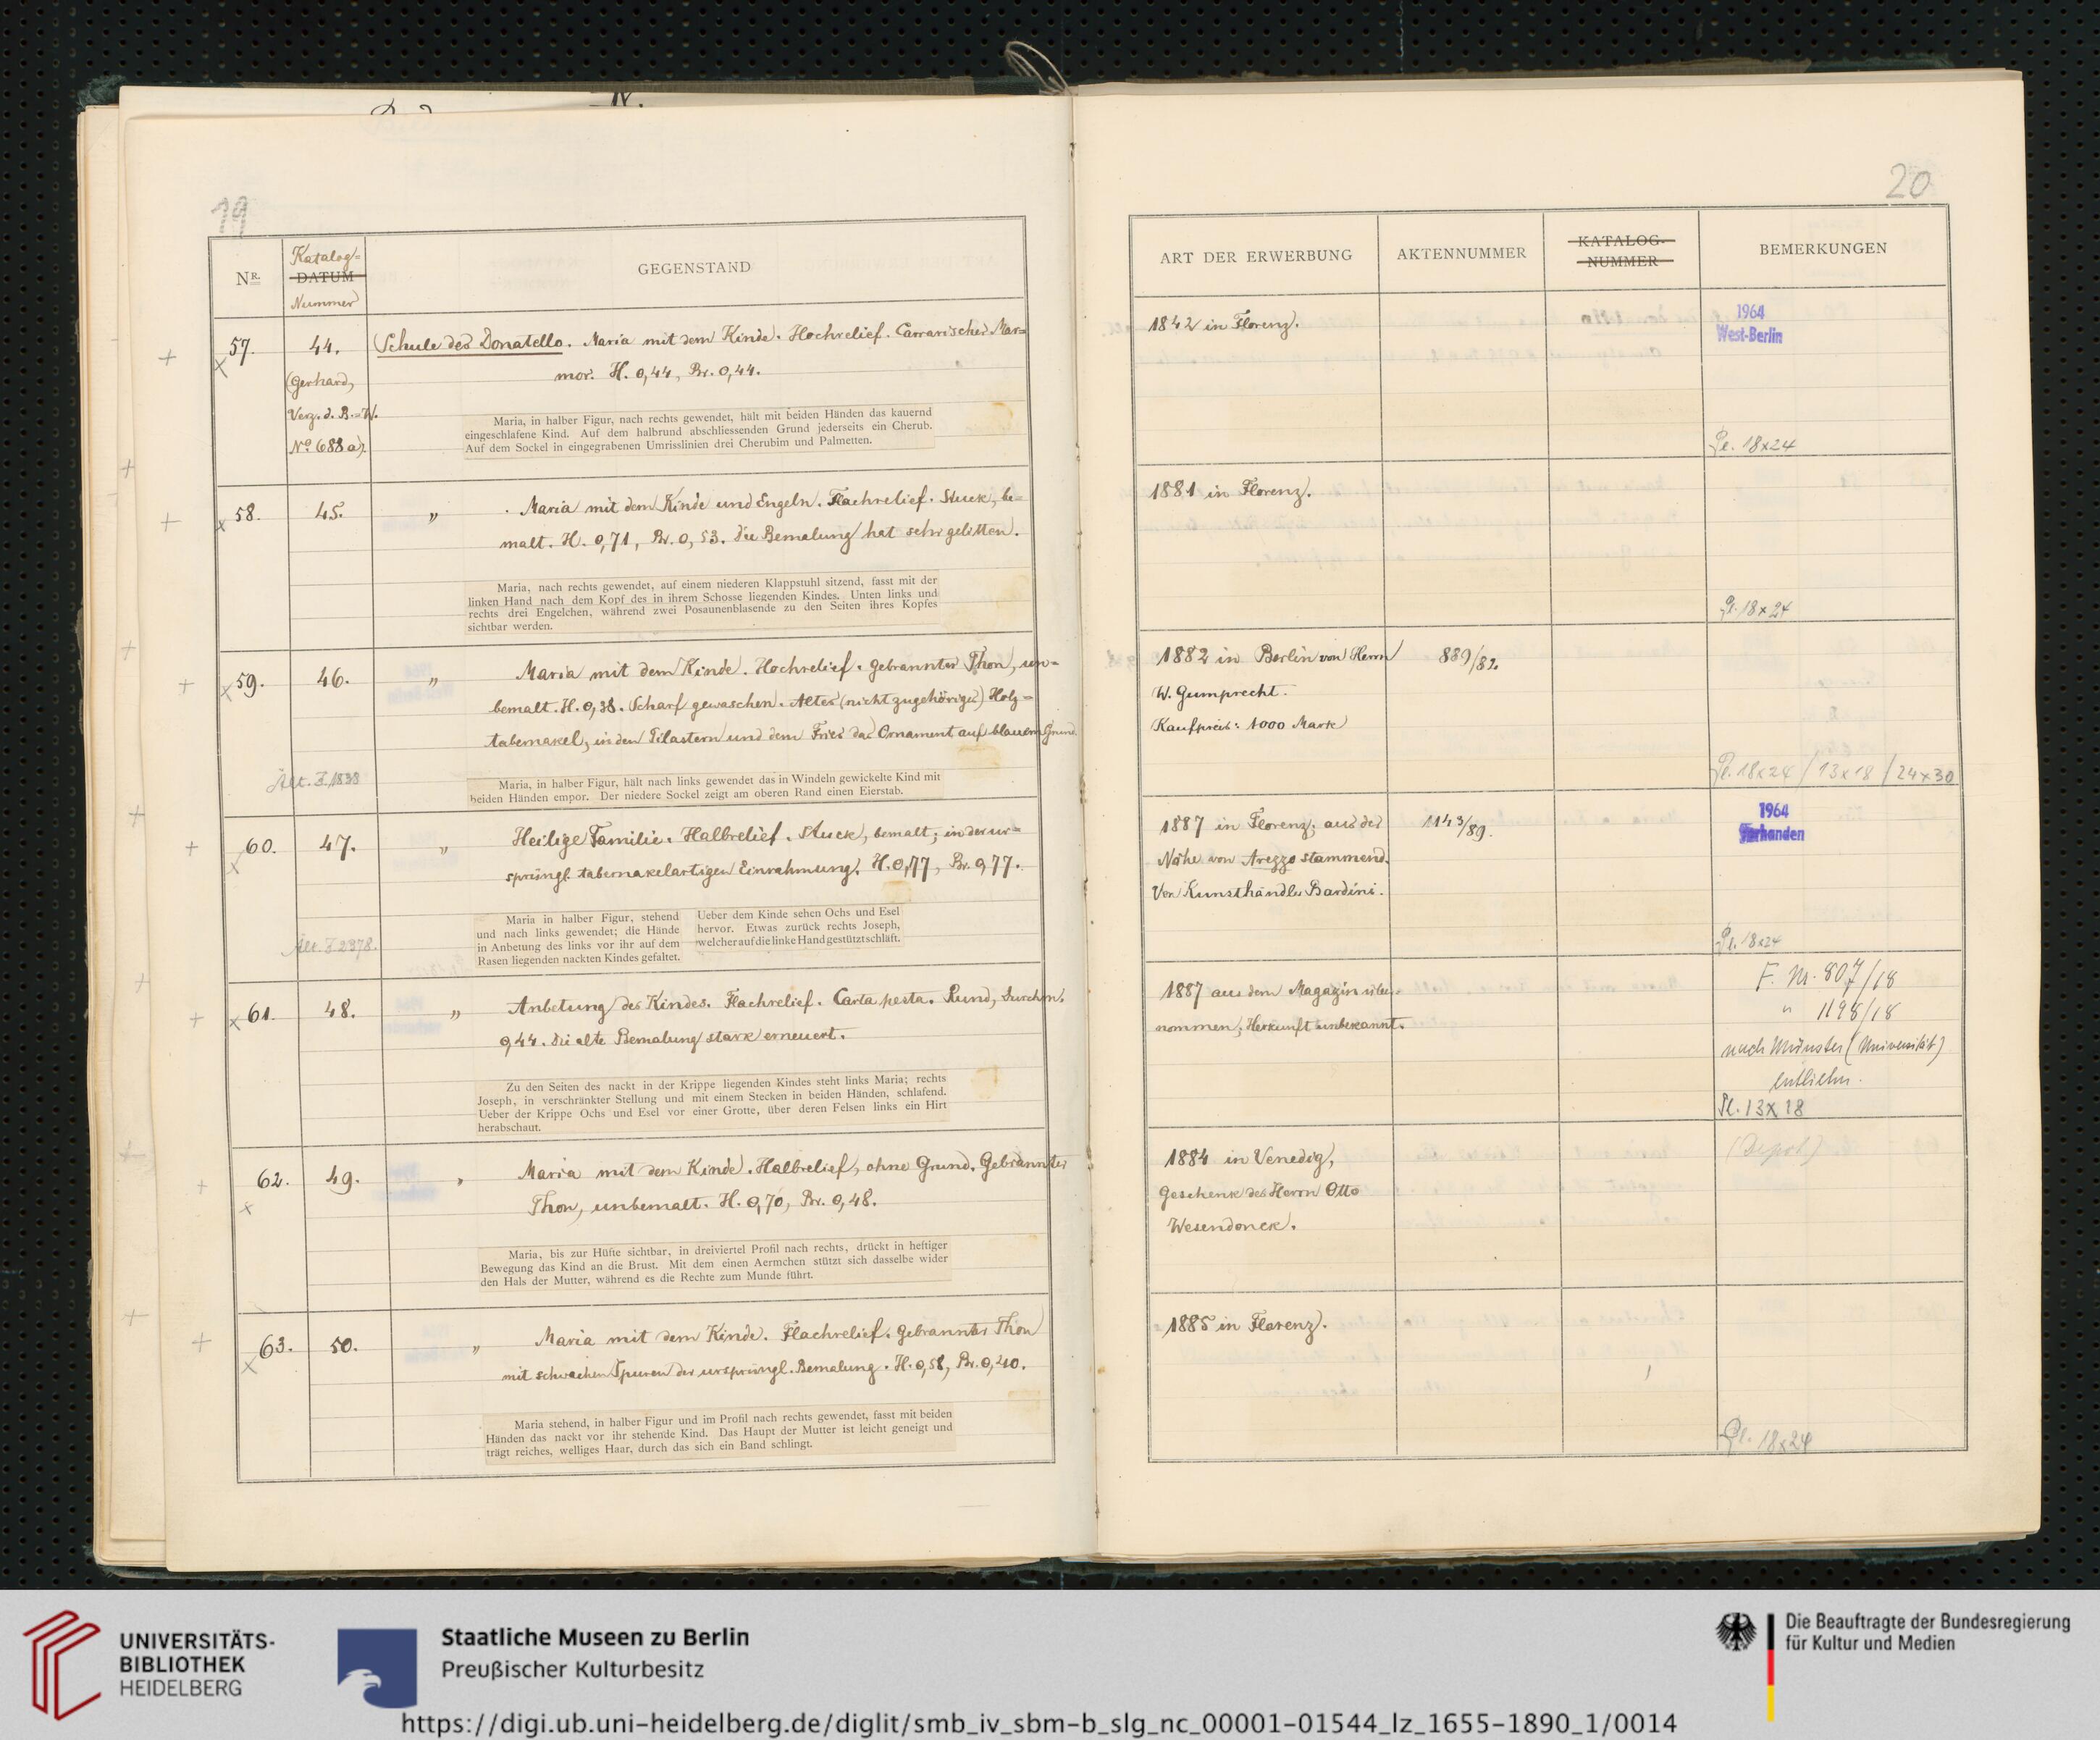 19
Nr.
Katalog-
DATUM
Nummer
GEGENSTAND
57.
44.
(Gerhard,
Verz. d. B.-W.
No 688 a).
Schule des Donatello. Maria mit dem Kinde. Hochrelief. Carrarischer Mar=
mor. H. 0,44, Br. 0,44.
Maria, in halber Figur, nach rechts gewendet, hält mit beiden Händen das kauernd
eingeschlafene Kind. Auf dem halbrund abschliessenden Grund jederseits ein Cherub.
Auf dem Sockel in eingegrabenen Umrisslinien drei Cherubim und Palmetten.
58.
45.
„ . Maria mit dem Kinde und Engeln. Flachrelief. Stuck, be=
malt. H. 0,71, Br. 0,53. Die Bemalung hat sehr gelitten.
Maria, nach rechts gewendet, auf einem niederen Klappstuhl sitzend, fasst mit der
linken Hand nach dem Kopf des in ihrem Schosse liegenden Kindes. Unten links und
rechts drei Engelchen, während zwei Posaunenblasende zu den Seiten ihres Kopfes
sichtbar werden.
59.
46.
Alt. I. 1838
„ Maria mit dem Kinde. Hochrelief. Gebrannter Thon, un=
bemalt. H. 0,38. Scharf gewaschen. Altes (nicht zugehöriges) Holz=
tabernakel, in den Pilastern und dem Fries das Ornament auf blauem Grund.
Maria, in halber Figur, hält nach links gewendet das in Windeln gewickelte Kind mit
beiden Händen empor. Der niedere Sockel zeigt am oberen Rand einen Eierstab.
60.
47.
Alt. I. 2378.
„ Heilige Familie. Halbrelief. Stuck, bemalt; in der ur=
sprüngl. tabernakelartigen Einrahmung. H. 0,77, Br. 0,77.
Maria in halber Figur, stehend
und nach links gewendet; die Hände
in Anbetung des links vor ihr auf dem
Rasen liegenden nackten Kindes gefaltet.
Ueber dem Kinde sehen Ochs und Esel
hervor. Etwas zurück rechts Joseph,
welcher auf die linke Hand gestützt schläft.
61.
48.
„ Anbetung des Kindes. Flachrelief. Carta pesta. Rund, Durchm.
0,44. Die alte Bemalung stark erneuert.
Zu den Seiten des nackt in der Krippe liegenden Kindes steht links Maria; rechts
Joseph, in verschränkter Stellung und mit einem Stecken in beiden Händen, schlafend.
Ueber der Krippe Ochs und Esel vor einer Grotte, über deren Felsen links ein Hirt
herabschaut.
62.
49.
„ Maria mit dem Kinde. Halbrelief, ohne Grund. Gebrannter
Thon, unbemalt. H. 0,70, Br. 0,48.
Maria, bis zur Hüfte sichtbar, in dreiviertel Profil nach rechts, drückt in heftiger
Bewegung das Kind an die Brust. Mit dem einen Aermchen stützt sich dasselbe wider
den Hals der Mutter, während es die Rechte zum Munde führt.
63.
50.
„ Maria mit dem Kinde. Flachrelief. Gebrannter Thon
mit schwachen Spuren der ursprüngl. Bemalung. H. 0,58, Br. 0,40.
Maria stehend, in halber Figur und im Profil nach rechts gewendet, fasst mit beiden
Händen das nackt vor ihr stehende Kind. Das Haupt der Mutter ist leicht geneigt und
trägt reiches, welliges Haar, durch das sich ein Band schlingt.
20
ART DER ERWERBUNG
AKTENNUMMER
KATALOG-
NUMMER
BEMERKUNGEN
1842 in Florenz.
1964
West-Berlin
Pl. 18x24
1881 in Florenz.
Pl. 18x24
1882 in Berlin von Herrn
W. Gumprecht.
Kaufpreis: 1000 Mark
889/82.
Pl. 18x24 / 13x18 / 24x30
1887 in Florenz; aus der
Nähe von Arezzo stammend.
Von Kunsthändler Bardini.
1143/89.
1964
Vorhanden
Pl. 18x24
1887 aus dem Magazin über-
nommen; Herkunft unbekannt.
F. Nr. 807/18
" 1198/18
nach Münster (Universität)
entliehn.
Pl. 13x18
1884 in Venedig,
Geschenk des Herrn Otto
Wesendonck.
(Depot)
1885 in Florenz.
Pl. 18x24
UNIVERSITÄTS-
BIBLIOTHEK
HEIDELBERG
Staatliche Museen zu Berlin
Preußischer Kulturbesitz
Die Beauftragte der Bundesregierung
für Kultur und Medien
https://digi.ub.uni-heidelberg.de/diglit/smb_iv_sbm-b_slg_nc_00001-01544_lz_1655-1890_1/0014